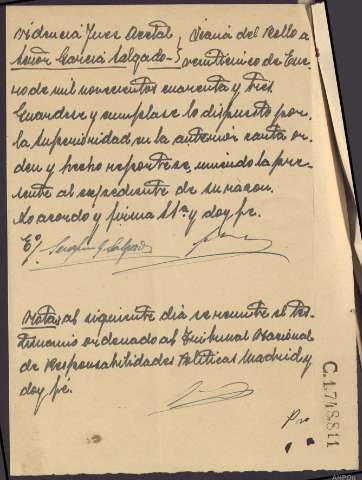 Videncia Juez Acctal } Viana del Bollo a
Señor García Salgado } veinticinco de Ene-
ro de mil novecientos cuarenta y tres.
Guardese y cumplase lo dispuesto por
la superioridad en la anterior carta or-
den y hecho reportese, uniendo la pre-
sente al expediente de su razon.
Lo acordo y firma Sª y doy fe.
Eº/
Nota: al siguiente dia se remite el tes-
timonio ordenado al Tribunal Nacional
de Responsabilidades Politicas Madrid y
doy fé.
C.1.748.811